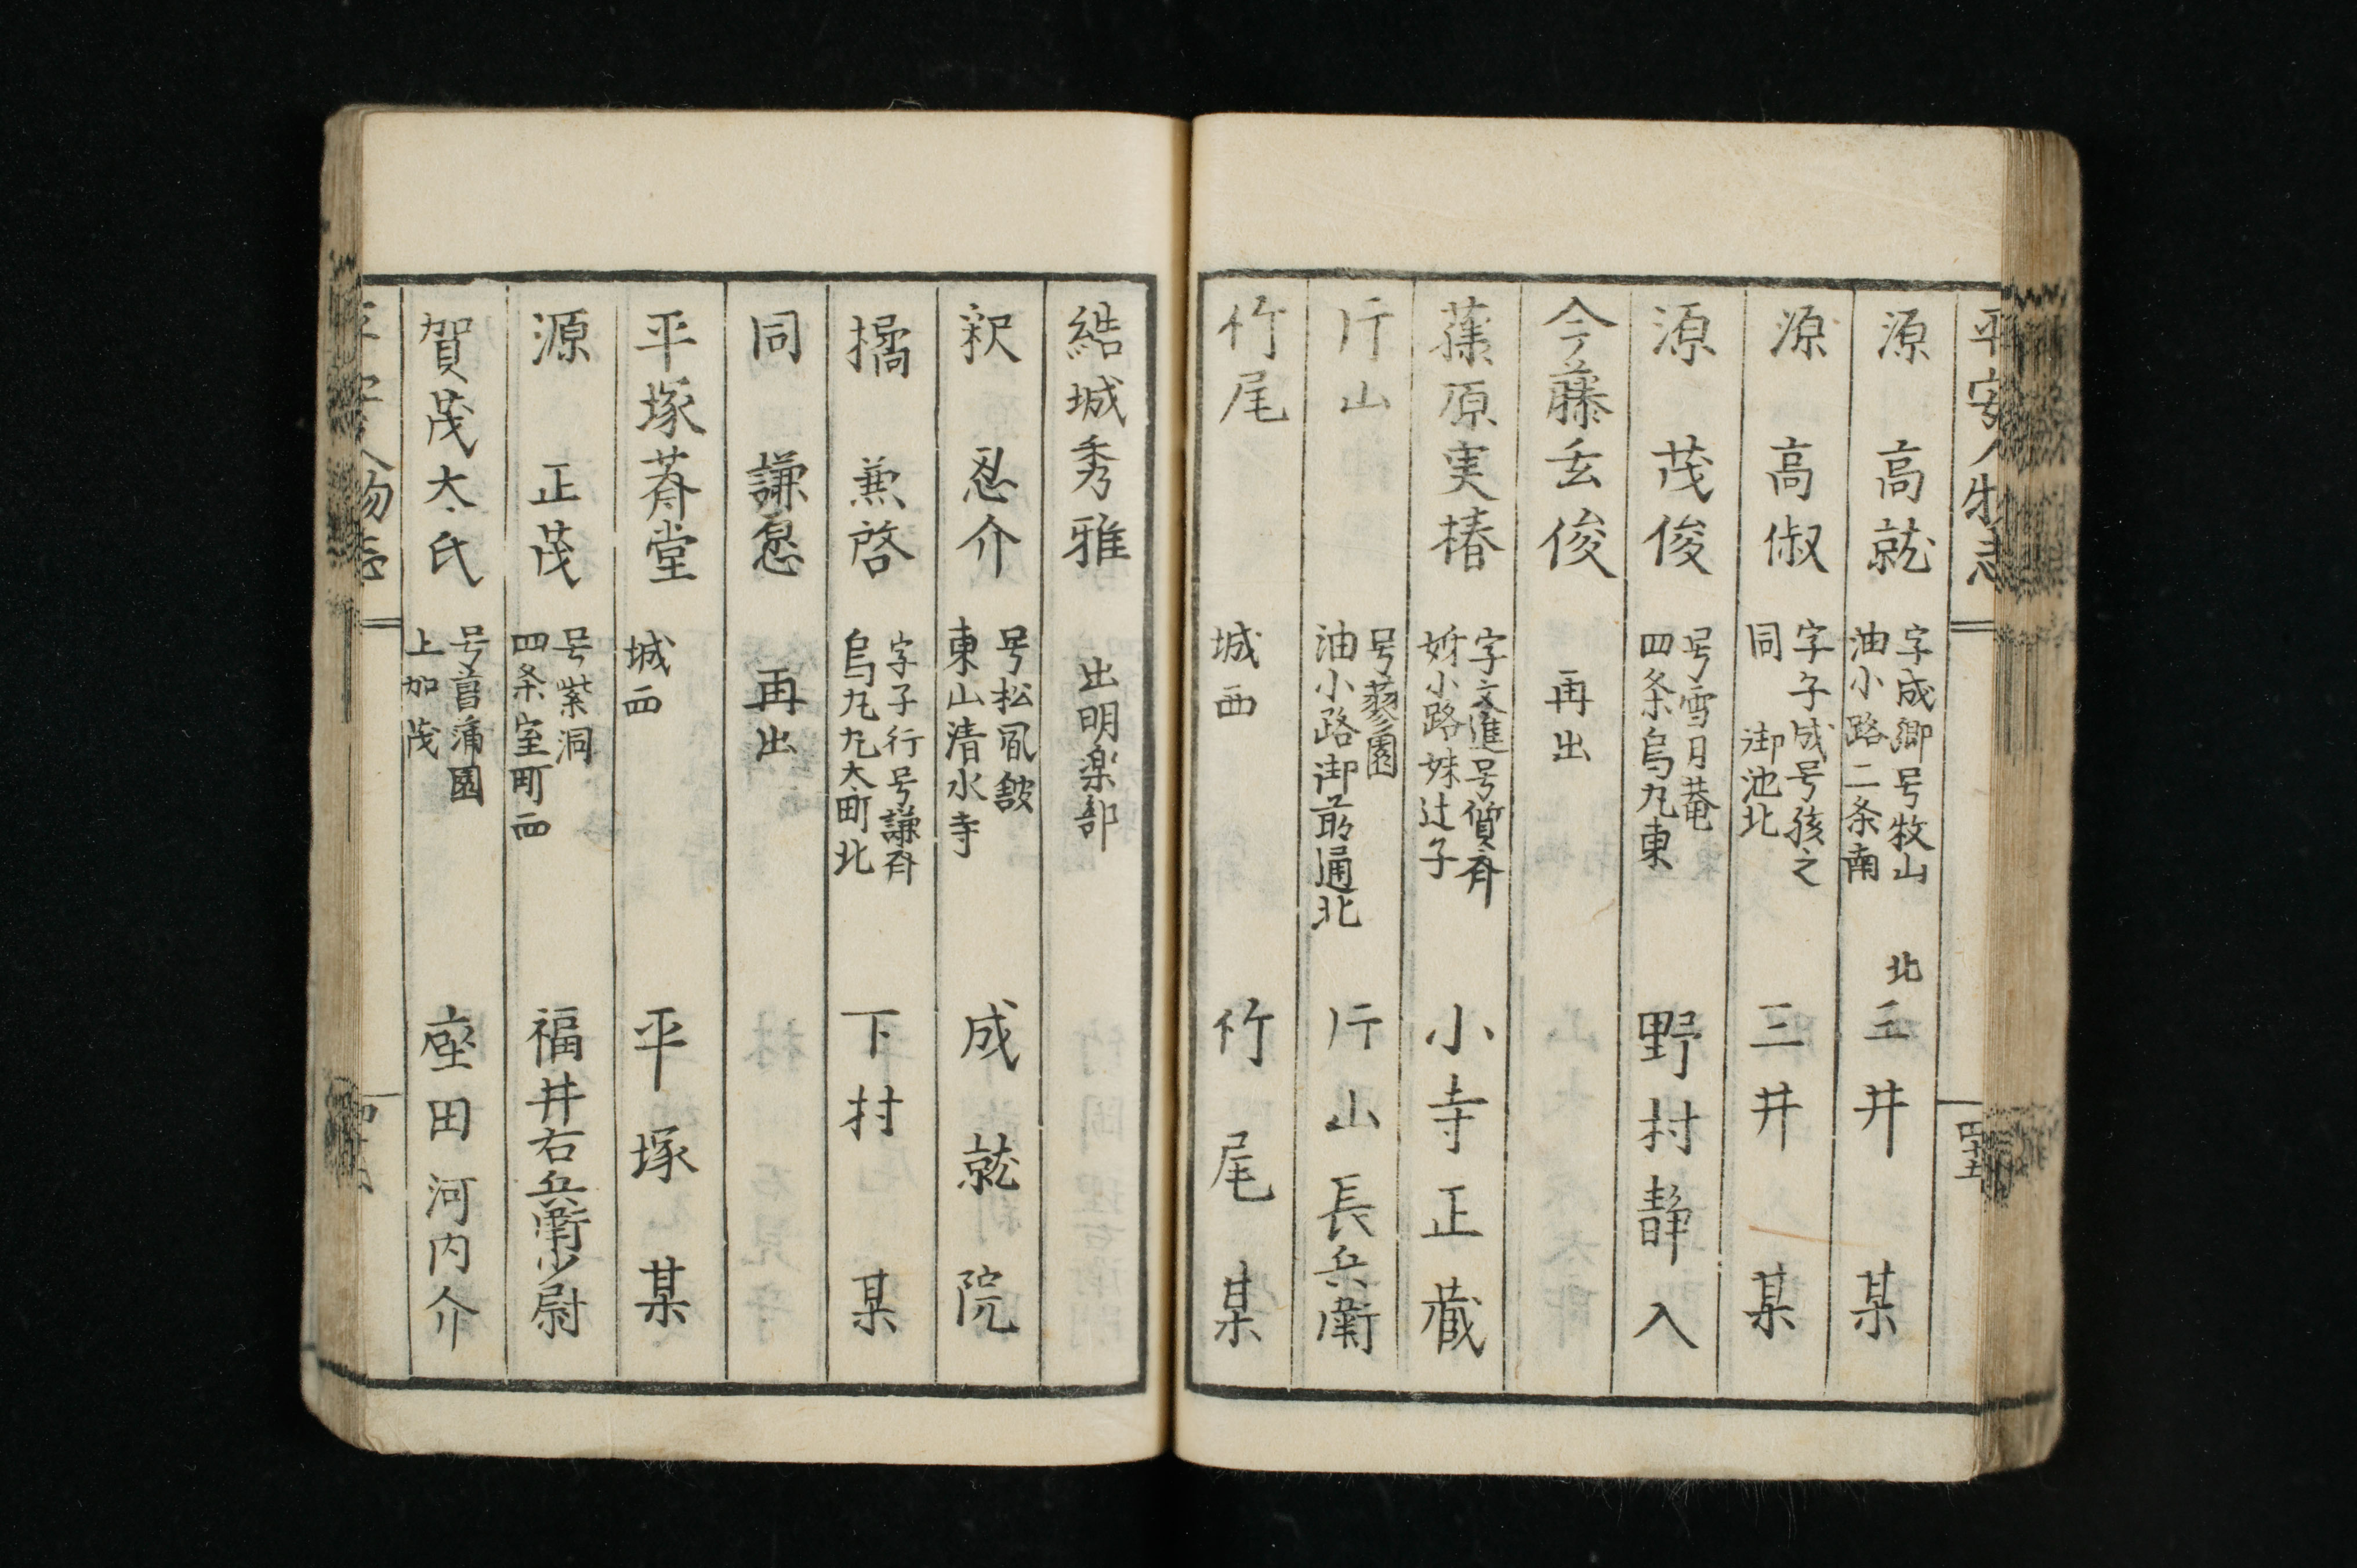 平安人物志
四十五
源 高就 字成卿号牧山 北三井 某
油小路二条南
源 高俶 字子成号孩之 三井 某
同 御池北
源 茂俊 号雪月菴 野村静入
四条烏丸東
今藤玄俊 再出
藤原実椿 字文進号質斉 小寺正蔵
姉小路妹辻子
片山 号蓼園 片山長兵衛
油小路御前通北
竹尾 城西 竹尾 某
結城秀雅 出明楽部
釈 忍介 号松風館 成就院
東山清水寺
橘 兼啓 字子行号謙斉 下村 某
烏丸丸太町北
同 謙 再出
平塚斉堂 城西 平塚 某
源 正茂 号紫洞 福井右兵衛少尉
四条室町西
賀茂太氏 号菖蒲園 座田河内介
上加茂
平安人物志